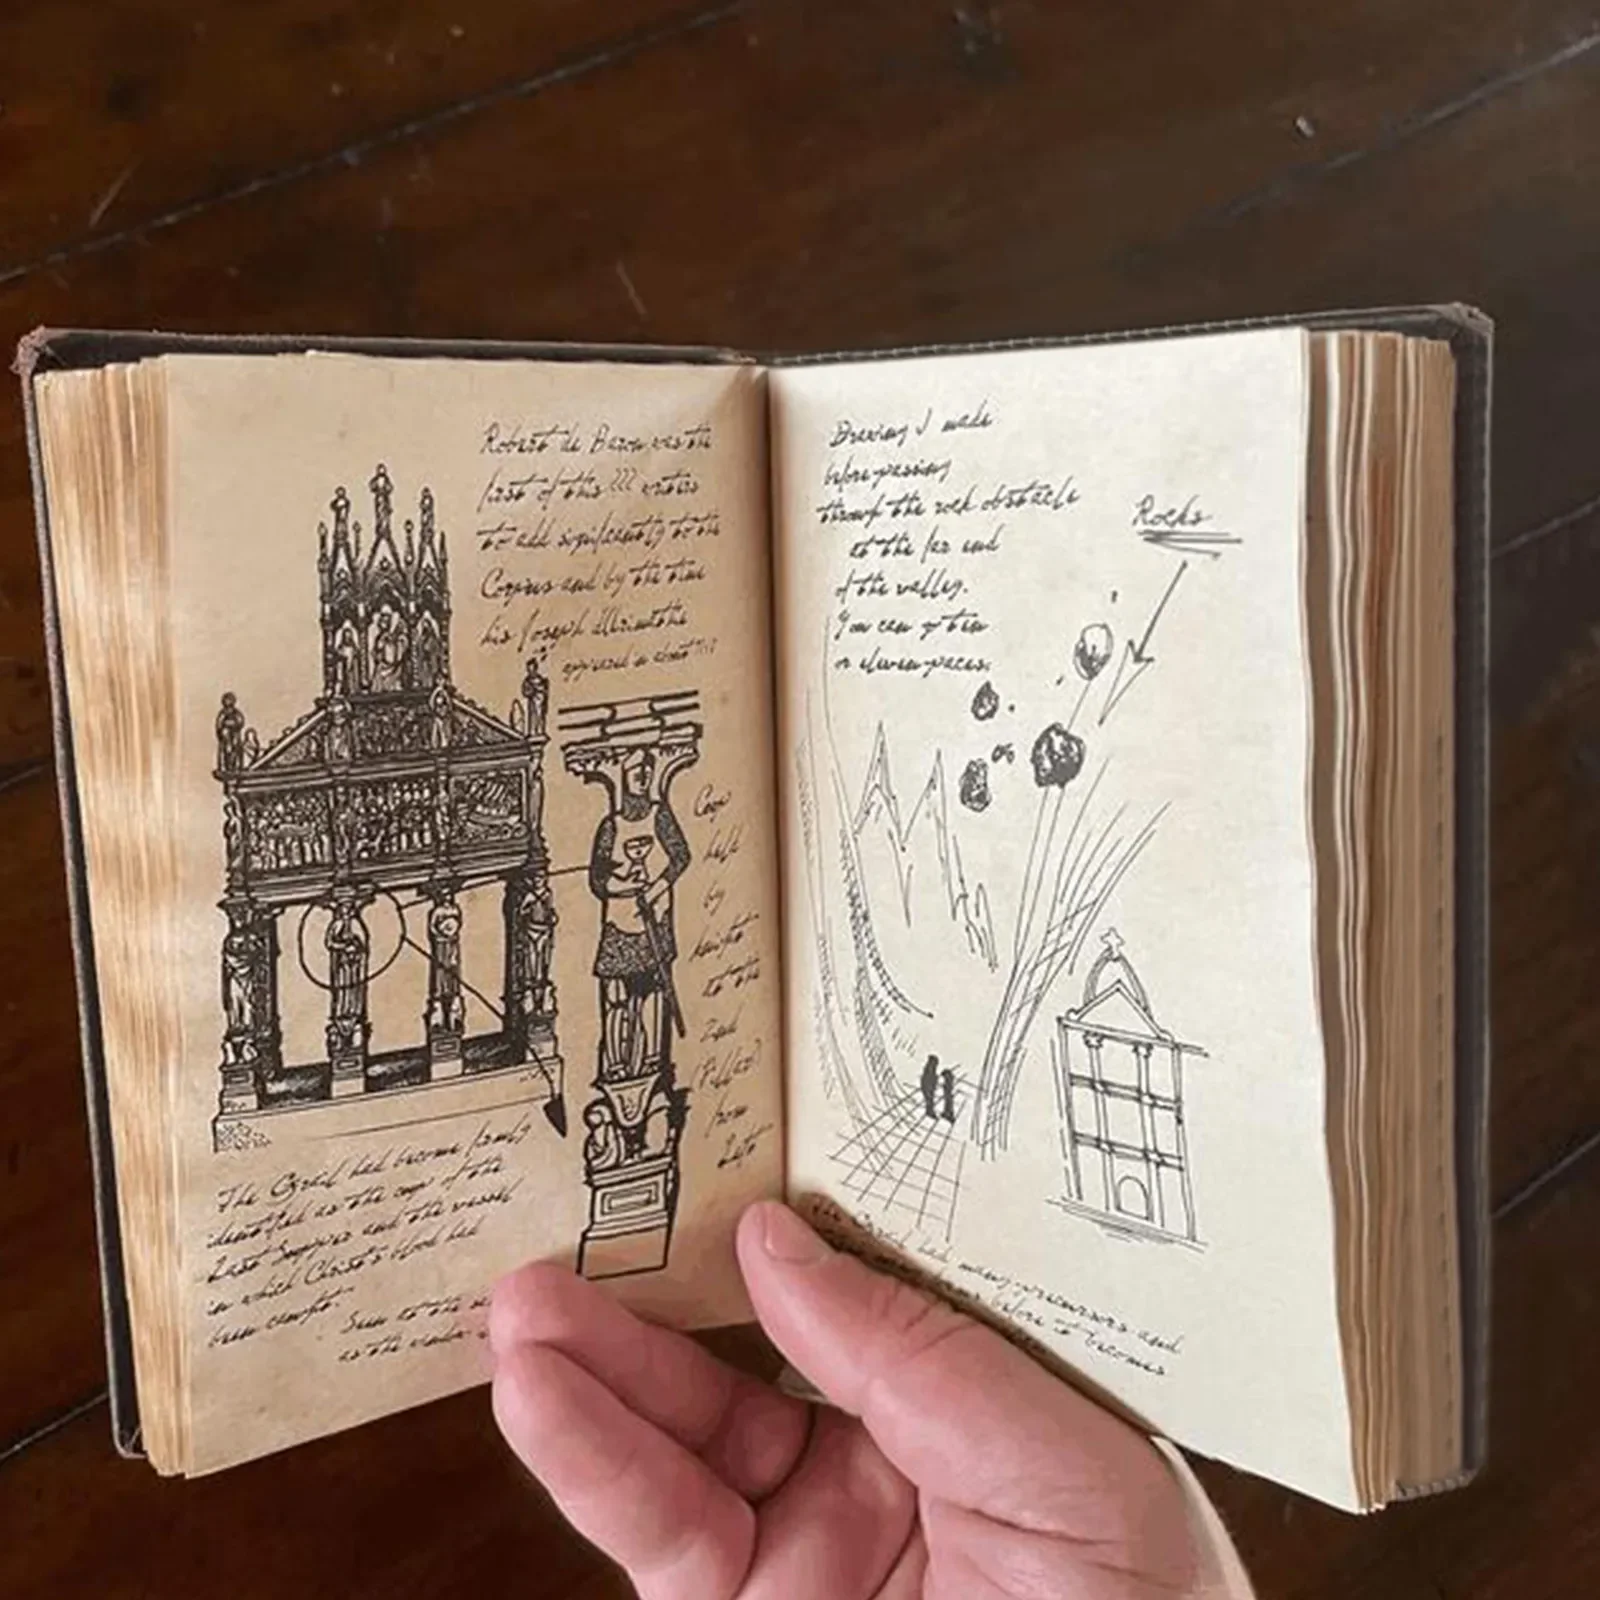 Robert de Boron was the
first of this ??? writers
to add significantly to the
Corpus and by the time
his Joseph
appeared in about
Cup
held
by
knight
at the
2nd
(Pillar)
from
Left
The Grail had become firmly
identified as the cup of the
Last Supper and the vessel
in which Christ's blood had
been caught.
Seen at the
as the
Drawing I made
before passing
through the rock obstacle
at the far end
of the valley.
You can go ten
or eleven paces.
Rocks
The Grail had many precursors and
before it becomes